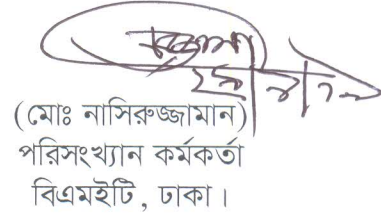 (মোঃ নাসিরুজ্জামান)
পরিসংখ্যান কর্মকর্তা
বিএমইটি, ঢাকা।